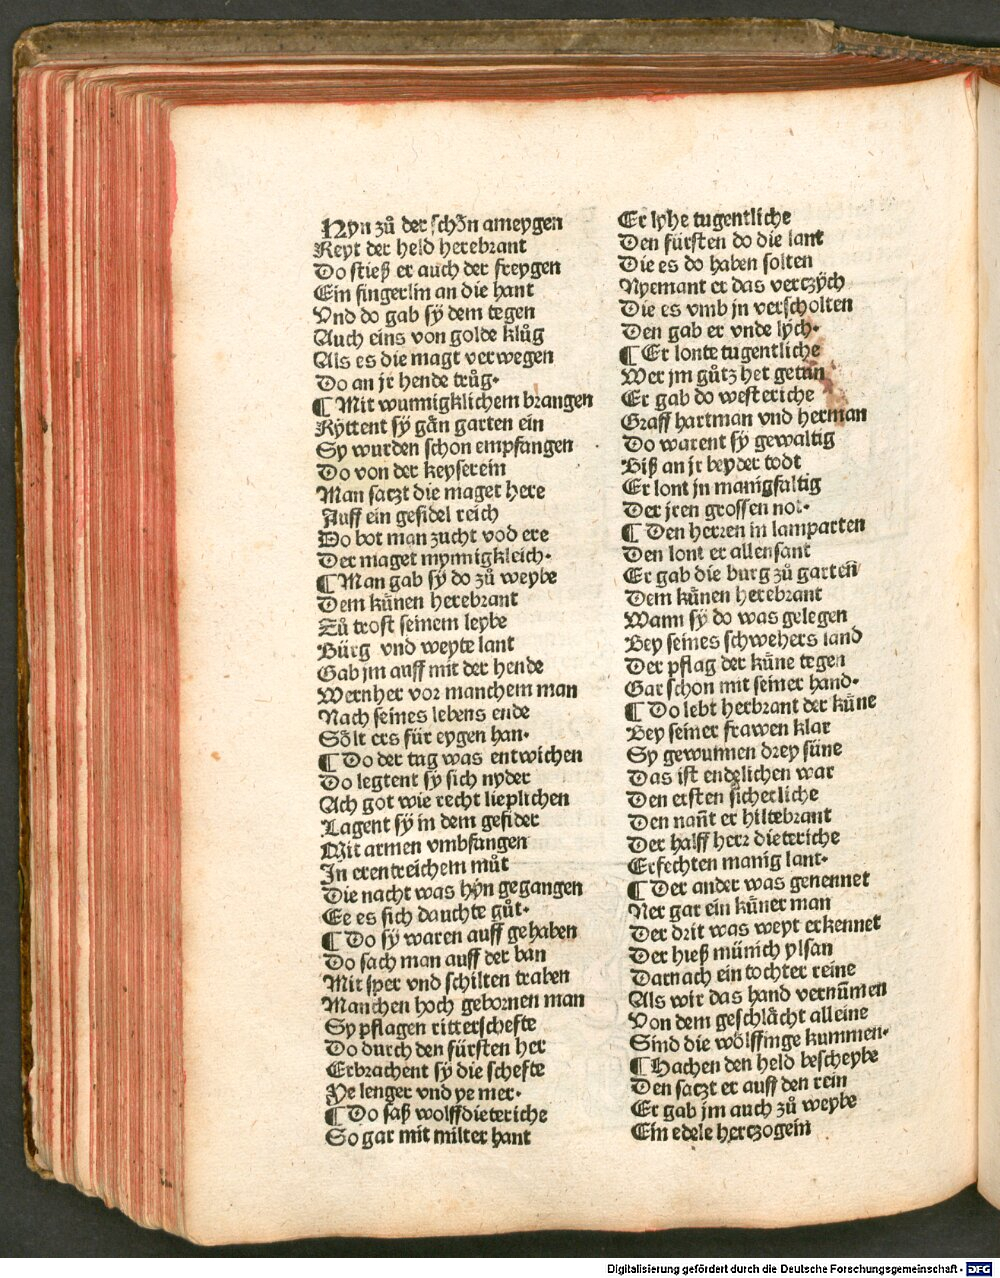 Nyn zů der schőn ameygen
Reyt der held herebrant
Do stieß er auch der freygen
Ein fingerlin an die hant
Vnd do gab sÿ dem tegen
Auch eins von golde klůg
Als es die magt verwegen
Do an jr hende trůg·
¶ Mit wunnigklichem brangen
Rÿttent sÿ gän garten ein
Sy wurden schon empfangen
Do von der keyserein
Man saczt die maget here
Auff ein gesidel reich
Do bot man zucht vod ere
Der maget mynnigkleich·
¶ Man gab sÿ do zů weybe
Dem kűnen herebrant
Zů trost seinem leybe
Bürg vnd weyte lant
Gab jm auff mit der hende
Wernher vor manchem man
Nach seines lebens ende
Sőlt ers für eygen han·
¶ Do der tag was entwichen
Do legtent sÿ sich nyder
Ach got wie recht lieplichen
Lagent sÿ in dem gefider
Mit armen vmbfangen
In erentreichem můt
Die nacht was hÿn gegangen
Ee es sich dauchte gůt·
¶ Do sÿ waren auff gehaben
Do sach man auff der ban
Mit sper vnd schilten traben
Manchen hoch gebornen man
Sy pflagen ritterschefte
Do durch den fürsten her
Erbrachent sÿ die schefte
Ye lenger vnd ye mer·
¶ Do saß wolffdieteriche
So gar mit milter hant
Er lyhe tugentliche
Den fürsten do die lant
Die es do haben solten
Nyemant er das verczÿch
Die es vmb jn verscholten
Den gab er vnde lÿch·
¶ Er lonte tugentliche
Wer jm gůtz het getan
Er gab do westeriche
Graff hartman vnd herman
Do warent sÿ gewaltig
Biß an jr beyder todt
Er lont jn manigfaltig
Der jren grossen not·
¶ Den herren in lamparten
Den lont er allensant
Er gab die burg zů garteñ
Dem kűnen herebrant
Wann sÿ do was gelegen
Bey seines schwehers land
Der pflag der kűne tegen
Gar schon mit seiner hand·
¶ Do lebt herbrant der kűne
Bey seiner frawen klar
Sy gewunnen drey süne
Das ist endelichen war
Den ersten sicherliche
Den nañt er hiltebrant
Der halff herr dieteriche
Erfechten manig lant·
¶ Der ander was genennet
Ner gar ein kűner man
Der drit was weyt erkennet
Der hieß münich ylsan
Darnach ein tochter reine
Als wir das hand vernūmen
Von dem geschlächt alleine
Sind die wőlffinge kummen·
¶ Hachen den held bescheybe
Den saczt er auff den rein
Er gab jm auch zů weybe
Ein edele herczogein
Digitalisierung gefördert durch die Deutsche Forschungsgemeinschaft - DFG